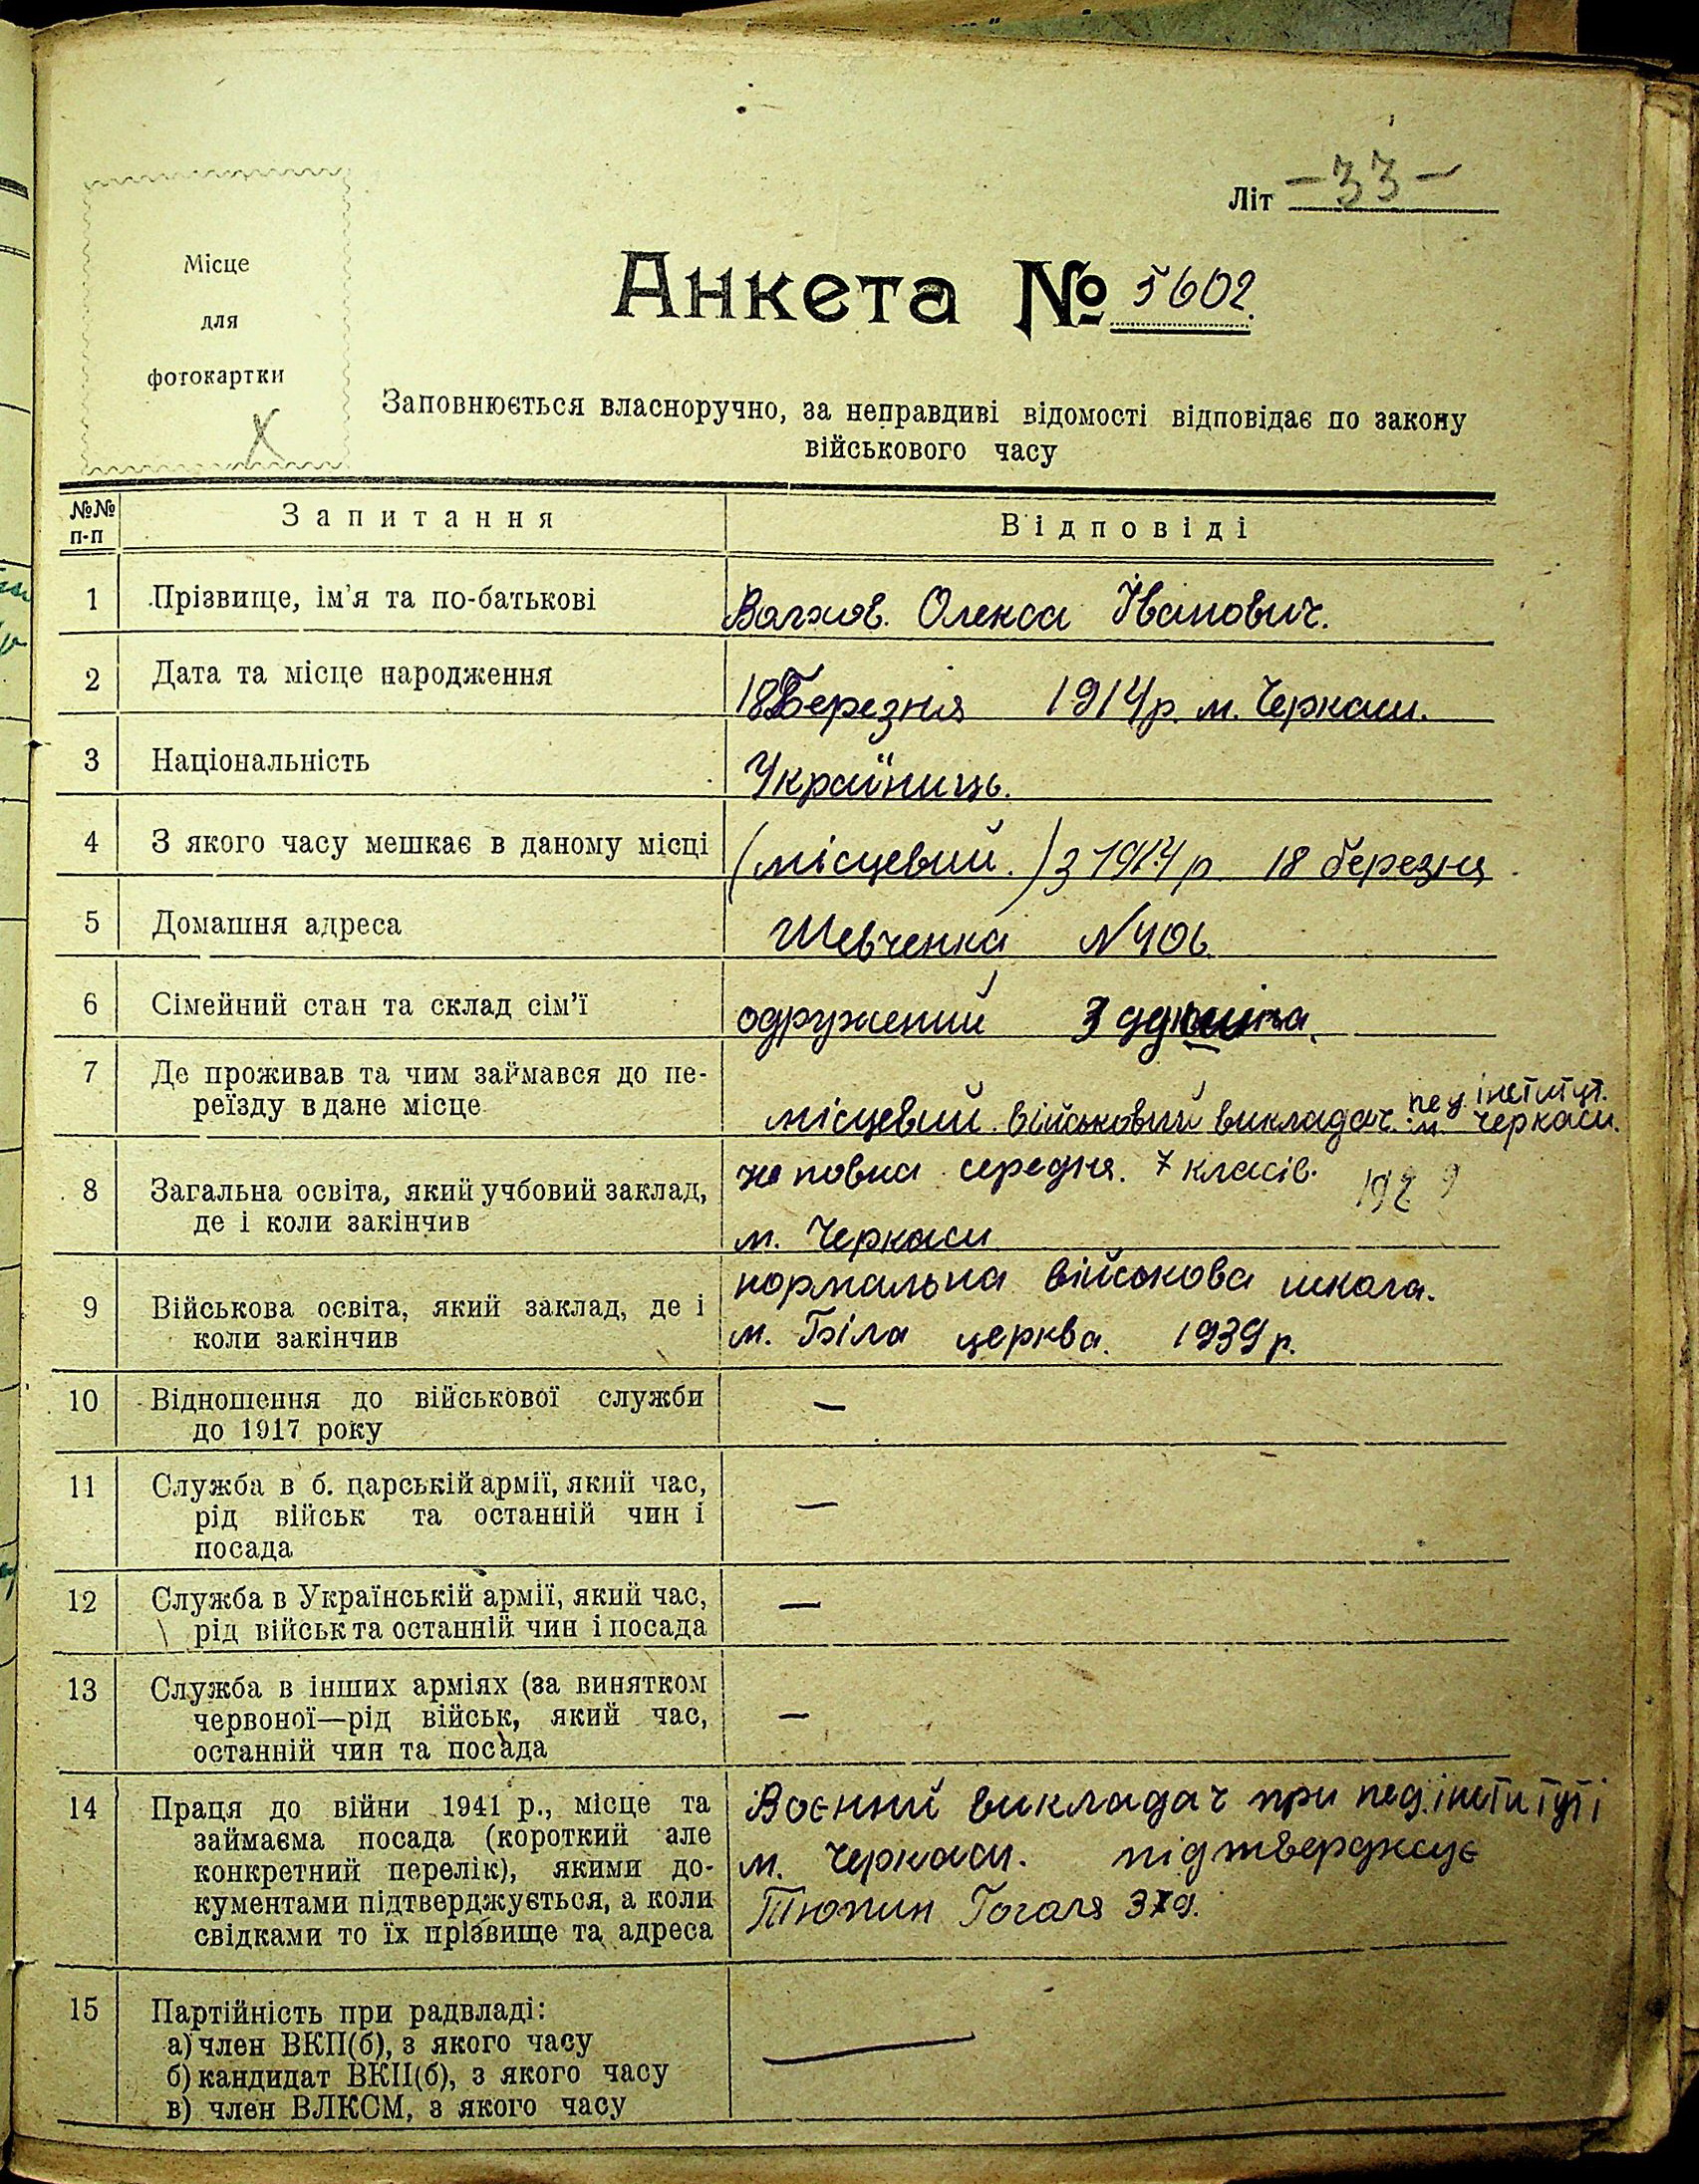 Літ -33-
Місце
для
фотокартки
Анкета № 5602.
Заповнюється власноручно, за неправдиві відомості відповідає по закону
військового часу
№№
п-п
Запитання
Відповіді
1 Прізвище, ім'я та по-батькові
Олекса Іванович.
2 Дата та місце народження
18 Березня 1914 р. м. Черкаси.
3 Національність
Україниць.
4 З якого часу мешкає в даному місці
(місцевий.) з 1914 р 18 березня
5 Домашня адреса
Шевченка №406.
6 Сімейний стан та склад сім'ї
одружений 3
7 Де проживав та чим займався до пе-
реїзду в дане місце
пед. інститут.
місцевий. військовий викладач. м. Черкаси.
8 Загальна освіта, який учбовий заклад,
де і коли закінчив
не повна середня. 7 класів. 1929
м. Черкаси
9 Військова освіта, який заклад, де і
коли закінчив
нормальна військова школа.
м. Біла церква. 1939 р.
10 Відношення до військової служби
до 1917 року
—
11 Служба в б. царській армії, який час,
рід військ та останній чин і
посада
—
12 Служба в Українській армії, який час,
рід військ та останній чин і посада
—
13 Служба в інших арміях (за винятком
червоної—рід військ, який час,
останній чин та посада
—
14 Праця до війни 1941 р., місце та
займаєма посада (короткий але
конкретний перелік), якими до-
кументами підтверджується, а коли
свідками то їх прізвище та адреса
Воєнний викладач при пед. інституті
м. Черкаси. підтверджує
Тюпин Гоголя
15 Партійність при радвладі:
а) член ВКП(б), з якого часу
б) кандидат ВКП(б), з якого часу
в) член ВЛКСМ, з якого часу
—